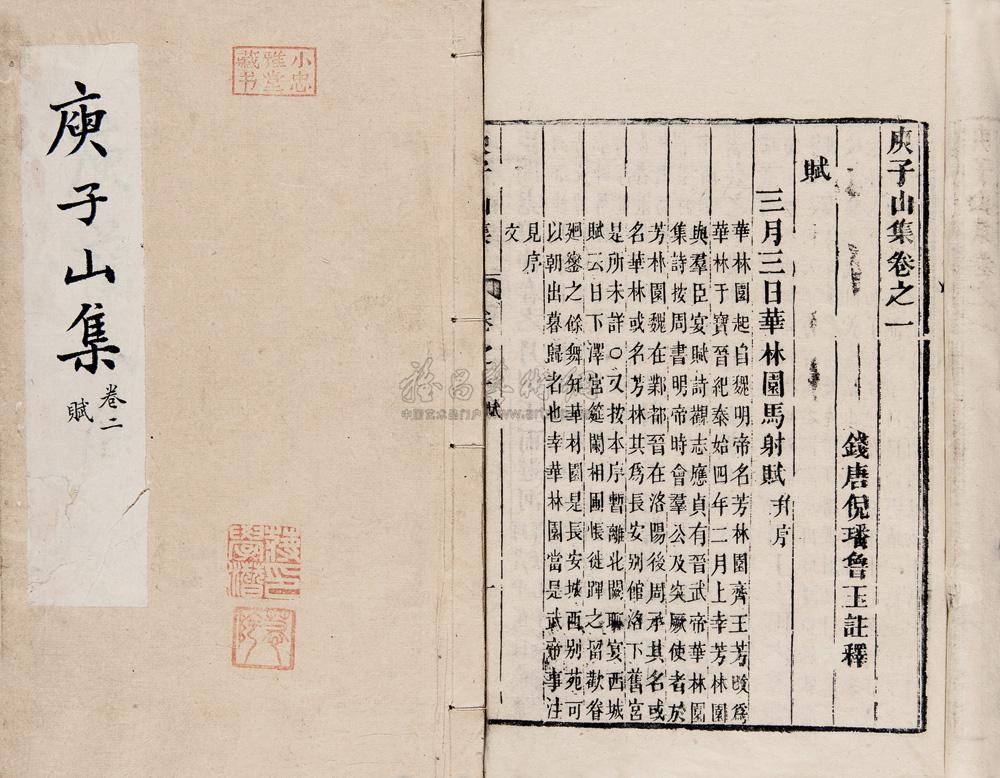 庾子山集
卷二
賦
小忠
雅堂
藏书
庾子山集卷之一
錢唐倪璠魯玉註釋
賦
三月三日華林園馬射賦 并序
華林園起自魏明帝名芳林園齊王芳改爲
華林于寶晉紀泰始四年二月上幸芳林園
與羣臣宴賦詩觀志應貞有晉武帝華林園
集詩按周書明帝時會羣公及突厥使者於
芳林園魏在鄴都晉在洛陽後周承其名或
名華林或名芳林其爲長安別館洛下舊宮
是所未詳〇又按本序暫離北闕聊宴西城
賦云日下澤宮筵闌相圃悵徙蹕之留歡眷
廻鑾之餘舞知華林園是長安城西别苑可
以朝出暮歸者也幸華林園當是武帝事注
見序
文